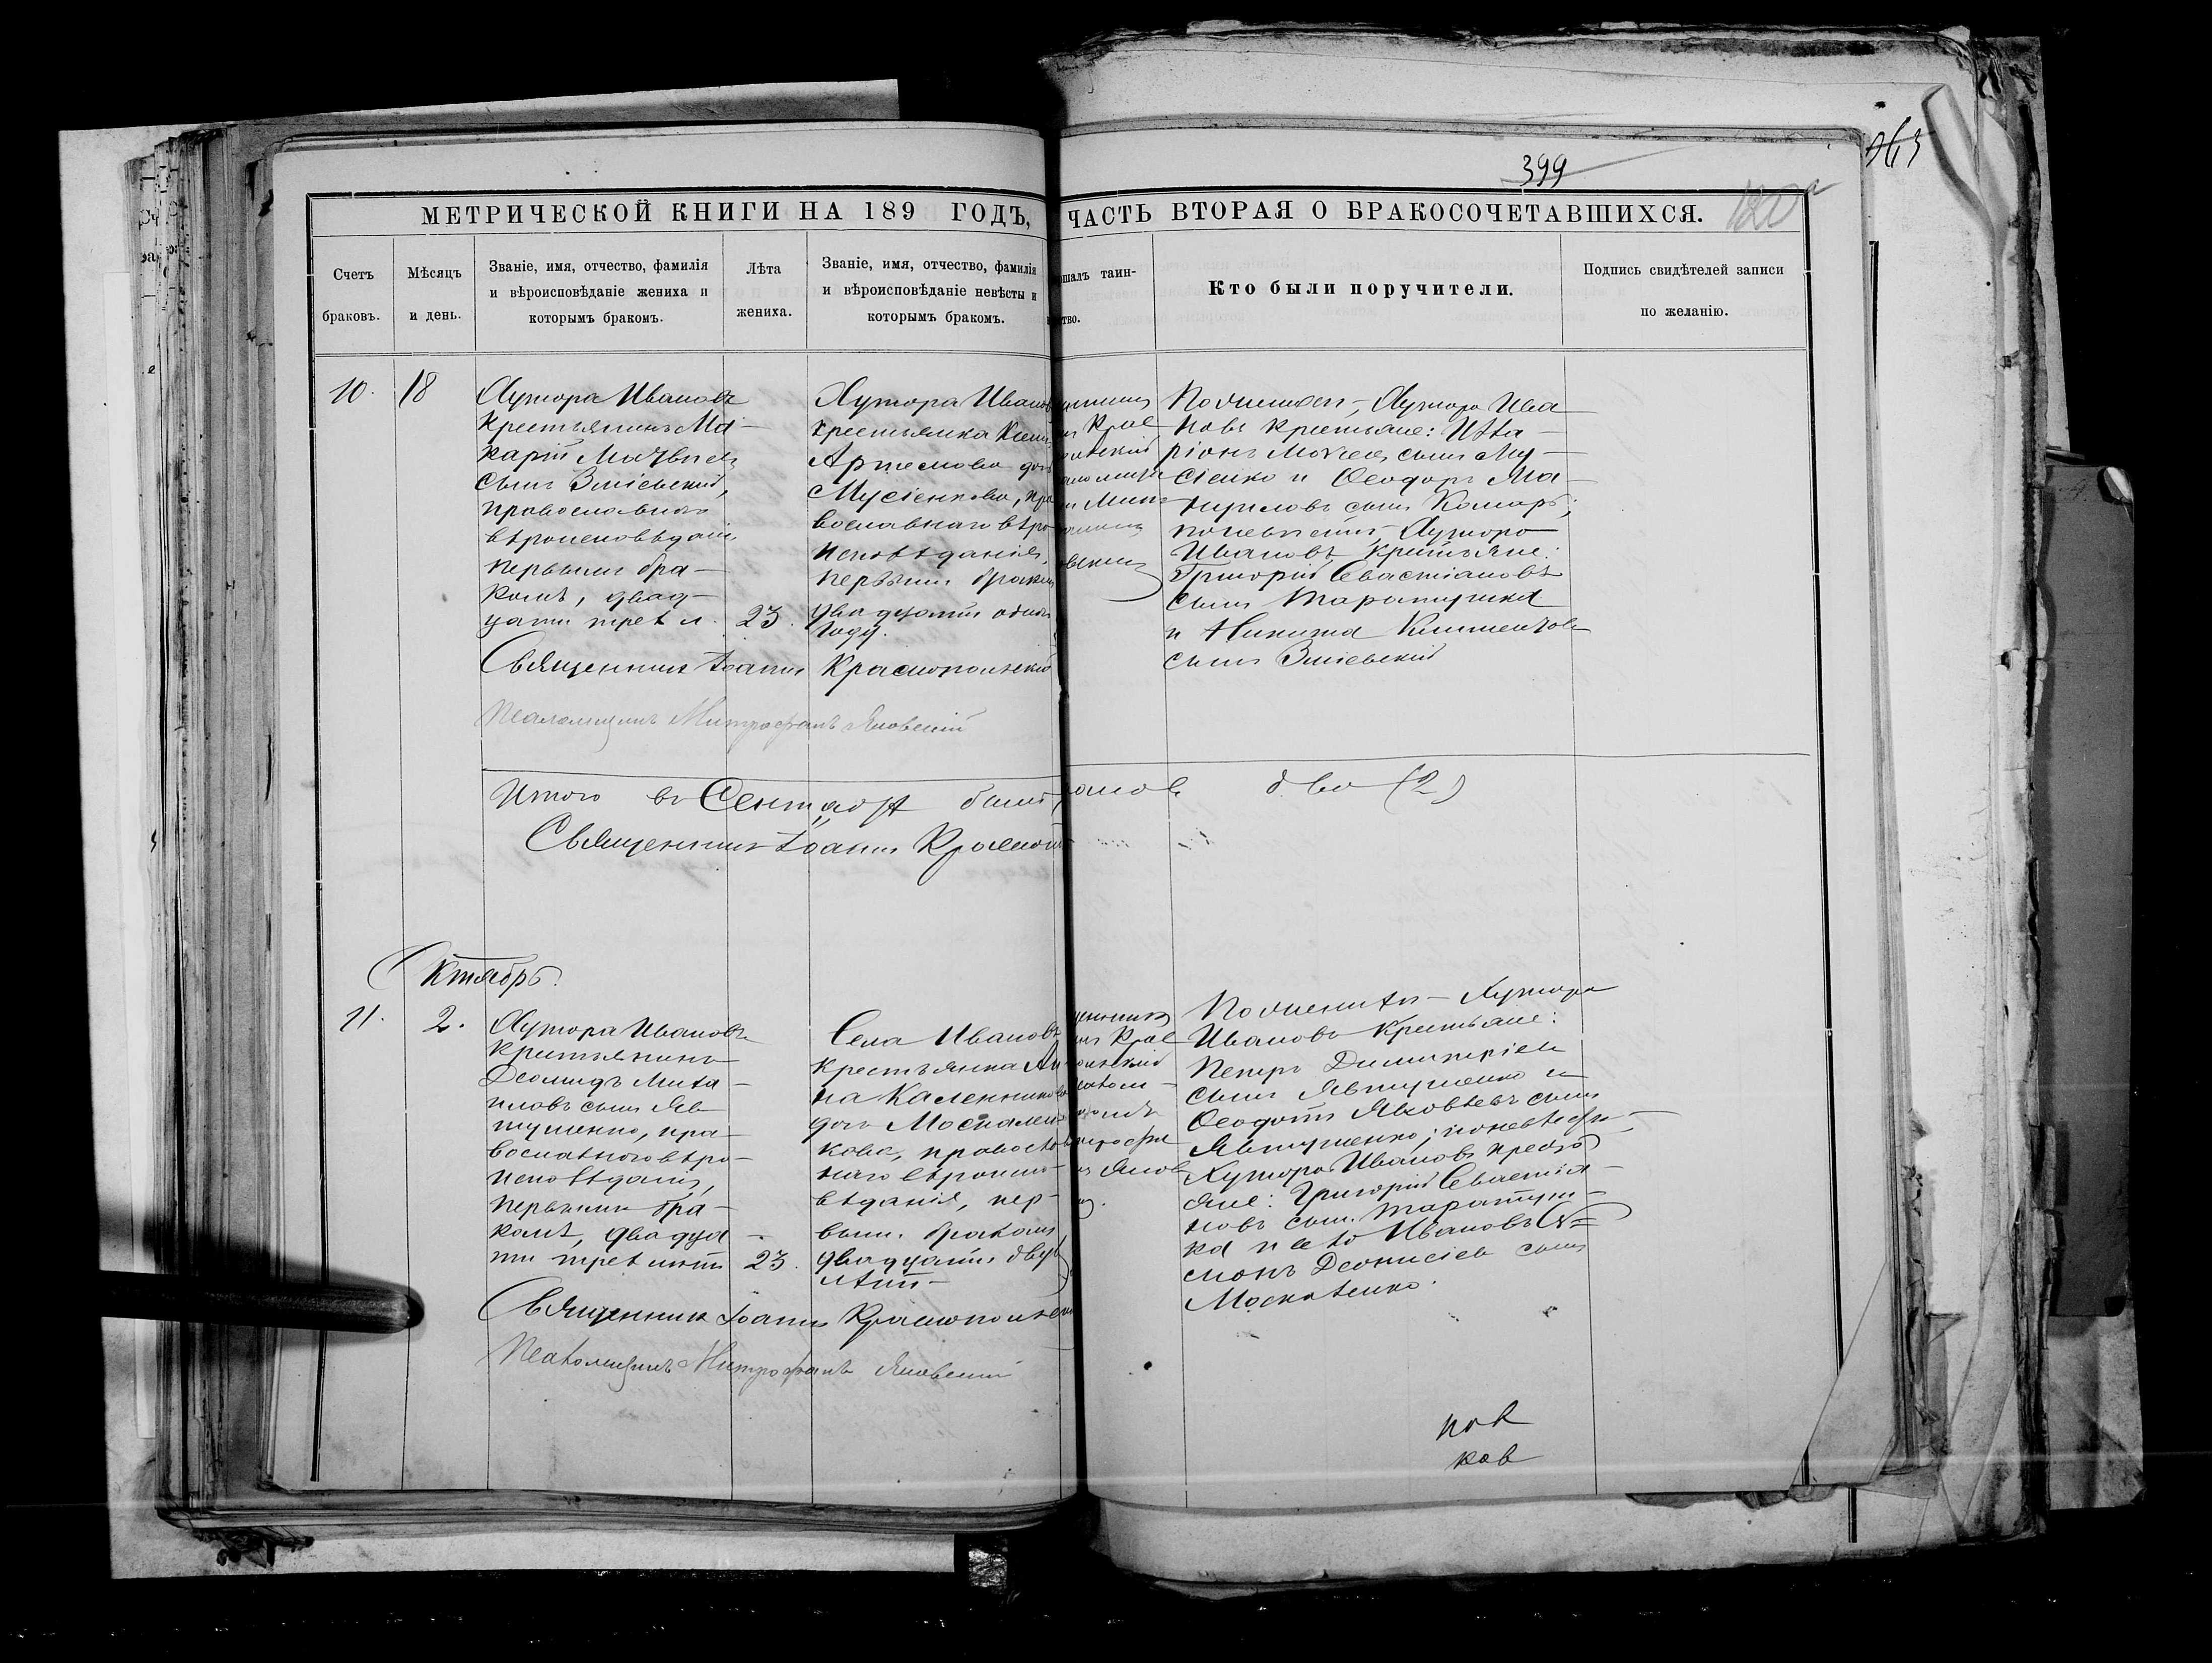 399
МЕТРИЧЕСКОЙ КНИГИ НА 189 ГОДЪ, ЧАСТЬ ВТОРАЯ О БРАКОСОЧЕТАВШИХСЯ.
Счетъ браковъ.
Мѣсяцъ и день.
Званіе, имя, отчество, фамилія
и вѣроисповѣданіе жениха и
которымъ бракомъ.
Лѣта
жениха.
Званіе, имя, отчество, фамилія
и вѣроисповѣданіе невѣсты и
которымъ бракомъ.
ршалъ таин-
ство.
Кто были поручители.
Подпись свидѣтелей записи
по желанію.
10.
18
Хутора Ивановъ
крестьянинъ Ма-
карій
сынъ Зміевскій,
православнаго
вѣроисповѣданія
первымъ бра-
комъ, двад-
цати трех л.
23.
Хутора Иванов
крестьянка
Артемова дочь
Мусіенкова, пра
вославнаго вѣро
исповѣданія,
первымъ бракомъ
двадцати одного
году.
По женихѣ, Хутора Ива
новъ крестьяне: Ила-
ріонъ сынъ Му-
сіенко и Ѳеодоръ Ма-
нуиловъ сынъ Комаръ;
по невѣстѣ, Хутора
Ивановъ крестьяне:
Григорій Севастіановъ
сынъ Таратушка
и Никита Климентовъ
сынъ Зміевскій
Священникъ Іоаннъ Краснопольскій
Псаломщикъ Митрофанъ Яновскій
Итого въ Сентябрѣ было раков два (2)
Священникъ Іоаннъ Красноп
Октябрь.
11.
2.
Хутора Ивановъ
крестьянинъ
Деомидъ Миха-
иловъ сынъ Яв
тушенко, пра-
вославнаго вѣро-
исповѣданія,
первымъ бра-
комъ, двадца-
ти трех лѣтъ
23.
Села Ивановъ
крестьянка Ан
на Каленникова
дочь Москален-
кова, правосла
наго вѣроиспо-
вѣданія, пер-
вымъ бракомъ
двадцати двух
лѣтъ
По женихѣ - Хутора
Ивановъ крестьяне:
Петръ Димитріевъ
сынъ Явтушенко и
Ѳеодотъ Яковлевъ сынъ
Явтушенко; по невѣстѣ -
Хутора Ивановъ крестья
яне: Григорій Севастіа-
новъ сын. Таратуш-
ка и села Ивановъ Си=
монъ Деонисіевъ сынъ
Москаленко.
Священникъ Іоаннъ Краснопольск
Псаломщикъ Митрофанъ Яновскій